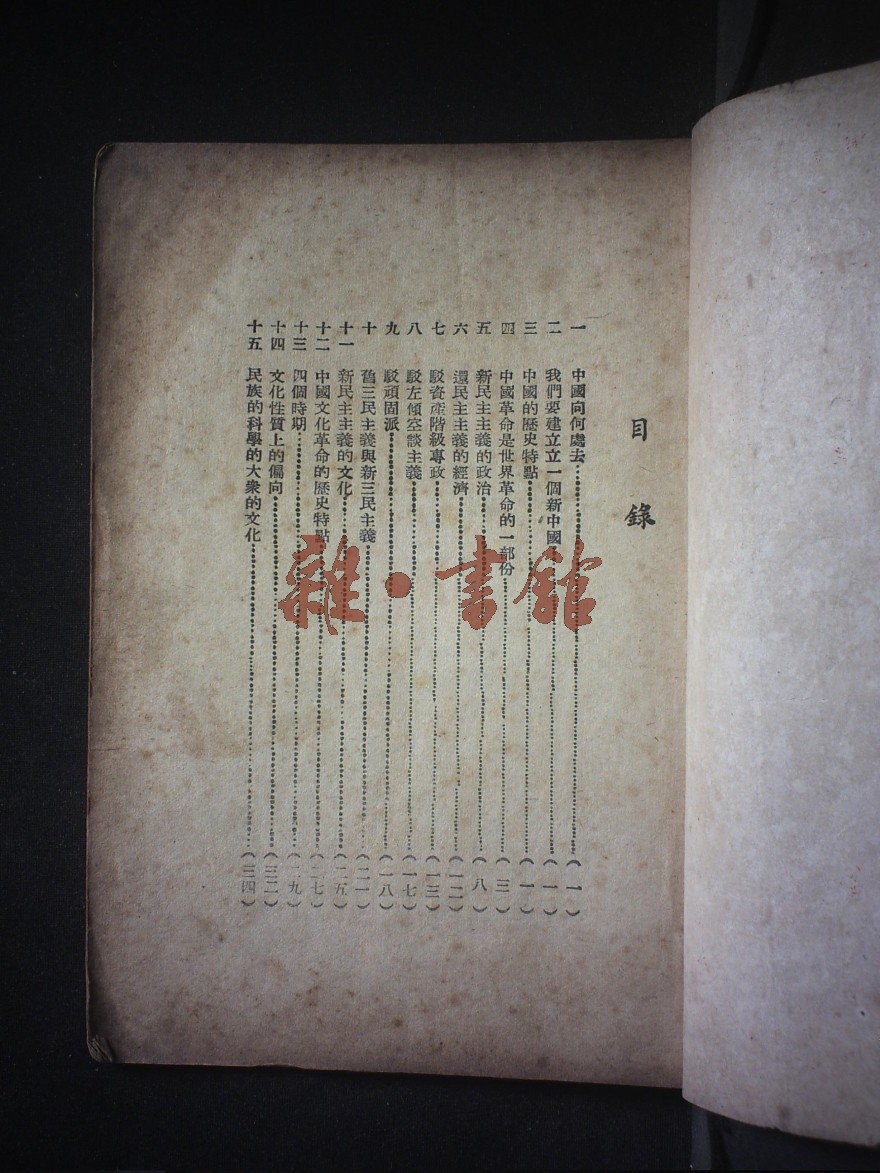 目錄
一 中國向何處去……(一)
二 我們要建立立一個新中國……(一)
三 中國的歷史特點……(一)
四 中國革命是世界革命的一部份……(三)
五 新民主主義的政治……(八)
六 還民主主義的經濟……(一二)
七 駁資產階級專政……(一三)
八 駁左傾空談主義……(一七)
九 駁頑固派……(一八)
十 舊三民主義與新三民主義……(二一)
十一 新民主主義的文化……(二五)
十二 中國文化革命的歷史特點……(二七)
十三 四個時期……(二九)
十四 文化性質上的偏向……(三二)
十五 民族的科學的大衆的文化……(三四)
雜·書館